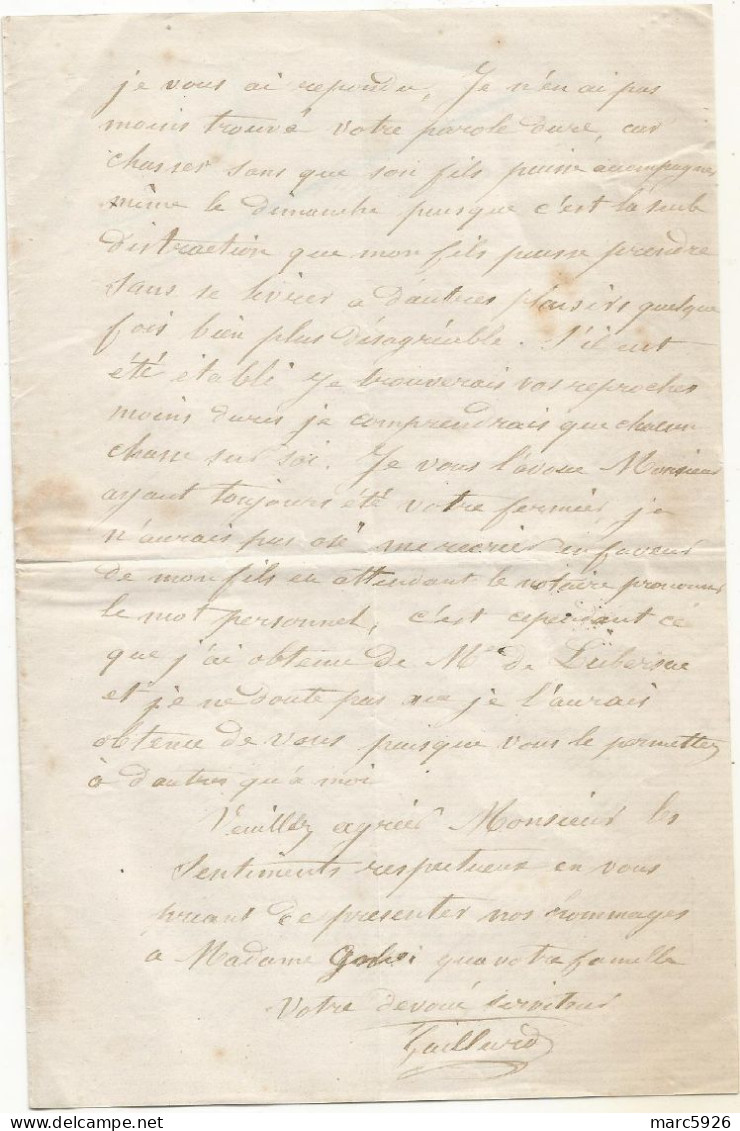 je vous ai repondu, Je n'en ai pas
moins trouvé votre parole dure, car
chasser sans que son fils puisse accompagner
même le dimanche puisque c'est la seule
distraction que mon fils puisse prendre
sans se livrer a d'autres plaisirs quelque
fois bien plus désagréable. S'il eut
été établi je trouverais vos reproches
moins dures je comprendrais que chacun
chasse sur soi. Je vous l'avoue Monsieur
ayant toujours été votre fermier, je
n'aurais pas osé me recrier en faveur
de mon fils en attendant le notaire prononcer
le mot personnel, c'est cependant ce
que j'ai obtenu de Mr de Lubersac
et je ne doute pas que je l'aurais
obtenu de vous puisque vous le permettez
à d'autres qu'à moi
Veuillez agréer Monsieur les
sentiments respectueux en vous
priant de presenter nos hommages
a Madame qua votre famille
Votre devoué serviteur
Gaillard
marc5926